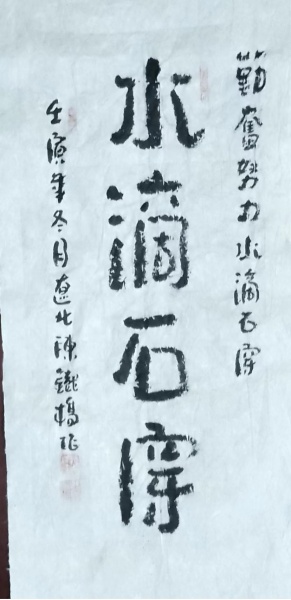 勤奮努力水滴石穿
水滴石穿
壬寅年冬月遼北陳鐵楊作